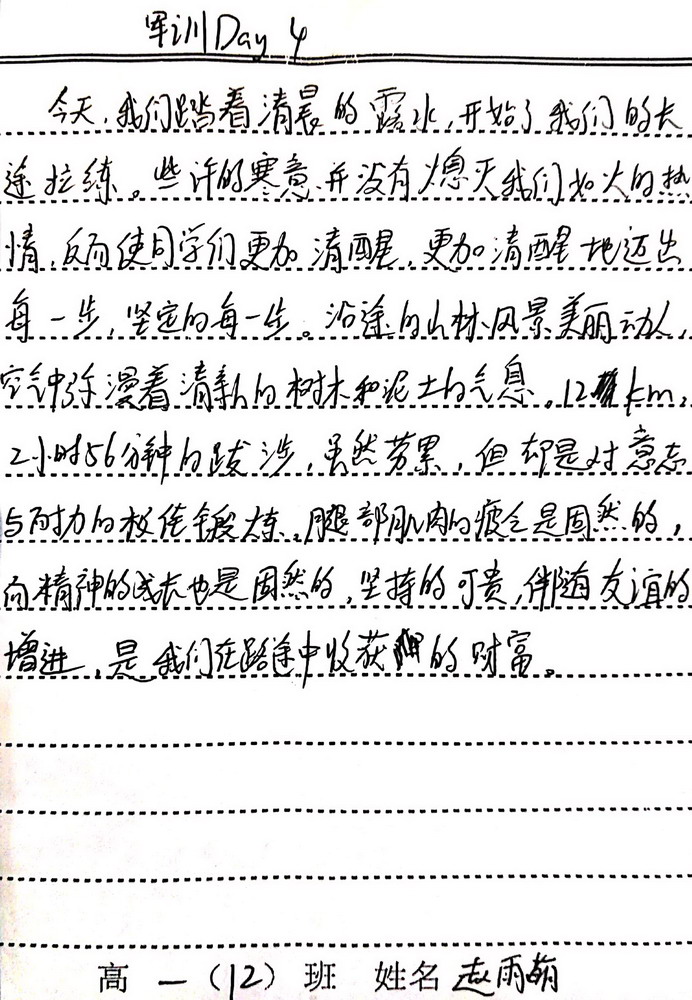 军训Day 4
今天,我们踏着清晨的露水,开始了我们的长
途拉练。些许的寒意并没有熄灭我们如火的热
情,反而使同学们更加清醒,更加清醒地迈出
每一步,坚定的每一步。沿途的山林风景美丽动人,
空气中弥漫着清新的树木和泥土的气息。12km,
2小时56分钟的跋涉,虽然劳累,但却是对意志
与耐力的极佳锻炼。腿部肌肉的疲乏是固然的,
而精神的成长也是固然的,坚持的可贵,伴随友谊的
增进,是我们在路途中收获的财富。
高一(12)班 姓名 赵雨萌